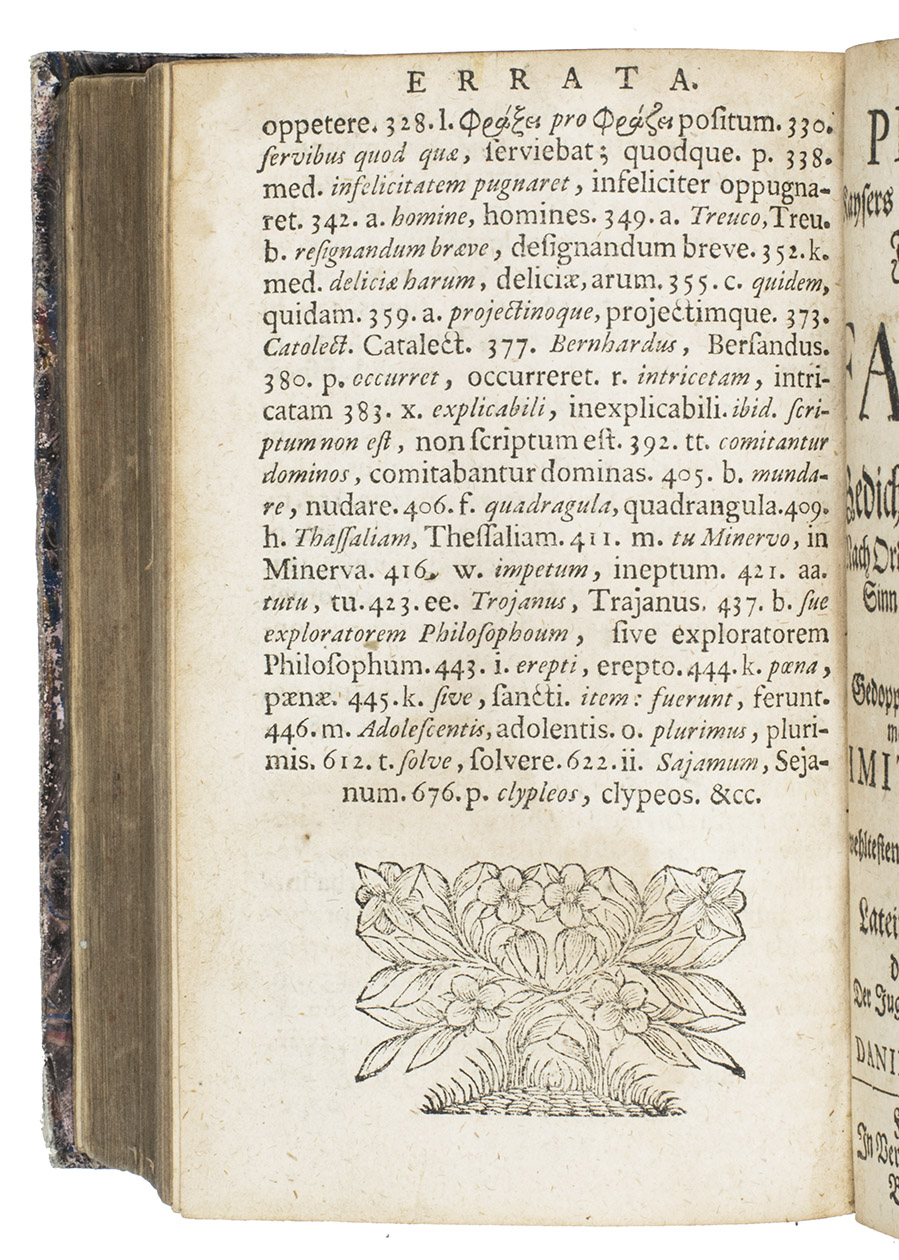 ERRATA.
oppetere. 328. l. Φράξει pro Φράζει poſitum. 330.
ſervibus quod quæ, ſerviebat; quodque. p. 338.
med. infelicitatem pugnaret, infeliciter oppugna-
ret. 342. a. homine, homines. 349. a. Treuco, Treu.
b. reſignandum bræve, deſignandum breve. 352. k.
med. deliciæ harum, deliciæ, arum. 355. c. quidem,
quidam. 359. a. projectinoque, projectimque. 373.
Catolect. Catalect. 377. Bernhardus, Berſandus.
380. p. occurret, occurreret. r. intricetam, intri-
catam 383. x. explicabili, inexplicabili. ibid. ſcri-
ptum non eſt, non ſcriptum eſt. 392. tt. comitantur
dominos, comitabantur dominas. 405. b. munda-
re, nudare. 406. f. quadragula, quadrangula. 409.
h. Thaſſaliam, Theſſaliam. 411. m. tu Minervo, in
Minerva. 416. w. impetum, ineptum. 421. aa.
tutu, tu. 423. ee. Trojanus, Trajanus. 437. b. ſue
exploratorem Philoſophoum, ſive exploratorem
Philoſophum. 443. i. erepti, erepto. 444. k. pœna,
pænæ. 445. k. ſive, ſancti. item: fuerunt, ferunt.
446. m. Adoleſcentis, adolentis. o. plurimus, pluri-
mis. 612. t. ſolve, ſolvere. 622. ii. Sajamum, Seja-
num. 676. p. clypleos, clypeos. &cc.
Sinn
IMI
Latei
DANI